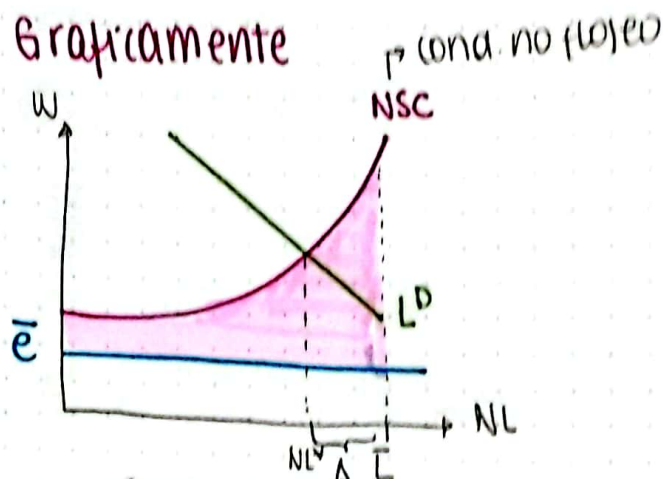 Graficamente
cond. no flojeo
NSC
W
L^D
ē
NL
NL* L̄